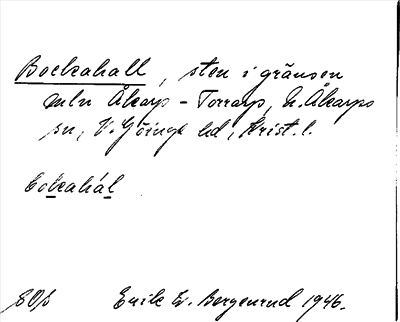 Bockahall, sten i gränsen
mln Åkarp - Torrarp, N. Åkarps
sn, V. Göinge hd, Krist. l.
bokahál
Erik W. Bergenrud 1946.